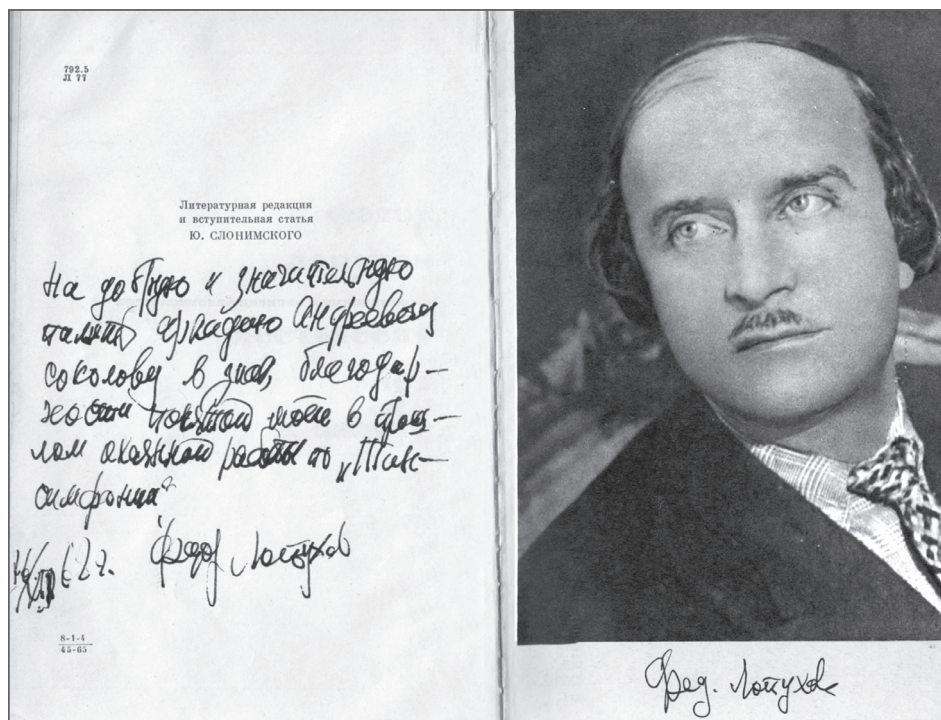 792.5
Л 77
Литературная редакция
и вступительная статья
Ю. СЛОНИМСКОГО
На добрую и значительную
память Аркадию Андреевичу
Соколову в знак благодар-
ности понятой мою в прош-
лом окаянной работы по „Танс-
симфонии“
Федор Лопухов
8-1-4
45-65
Фед. Лопухов